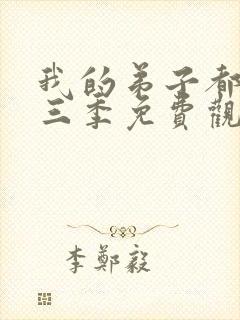 我的弟子都
三季免費觀
李鄭毅